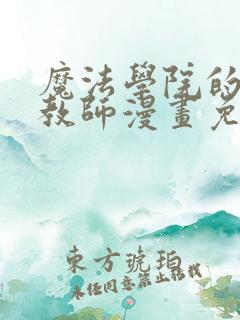 魔法學院的
教師漫畫免
東方琥珀
未任同意禁止轉載